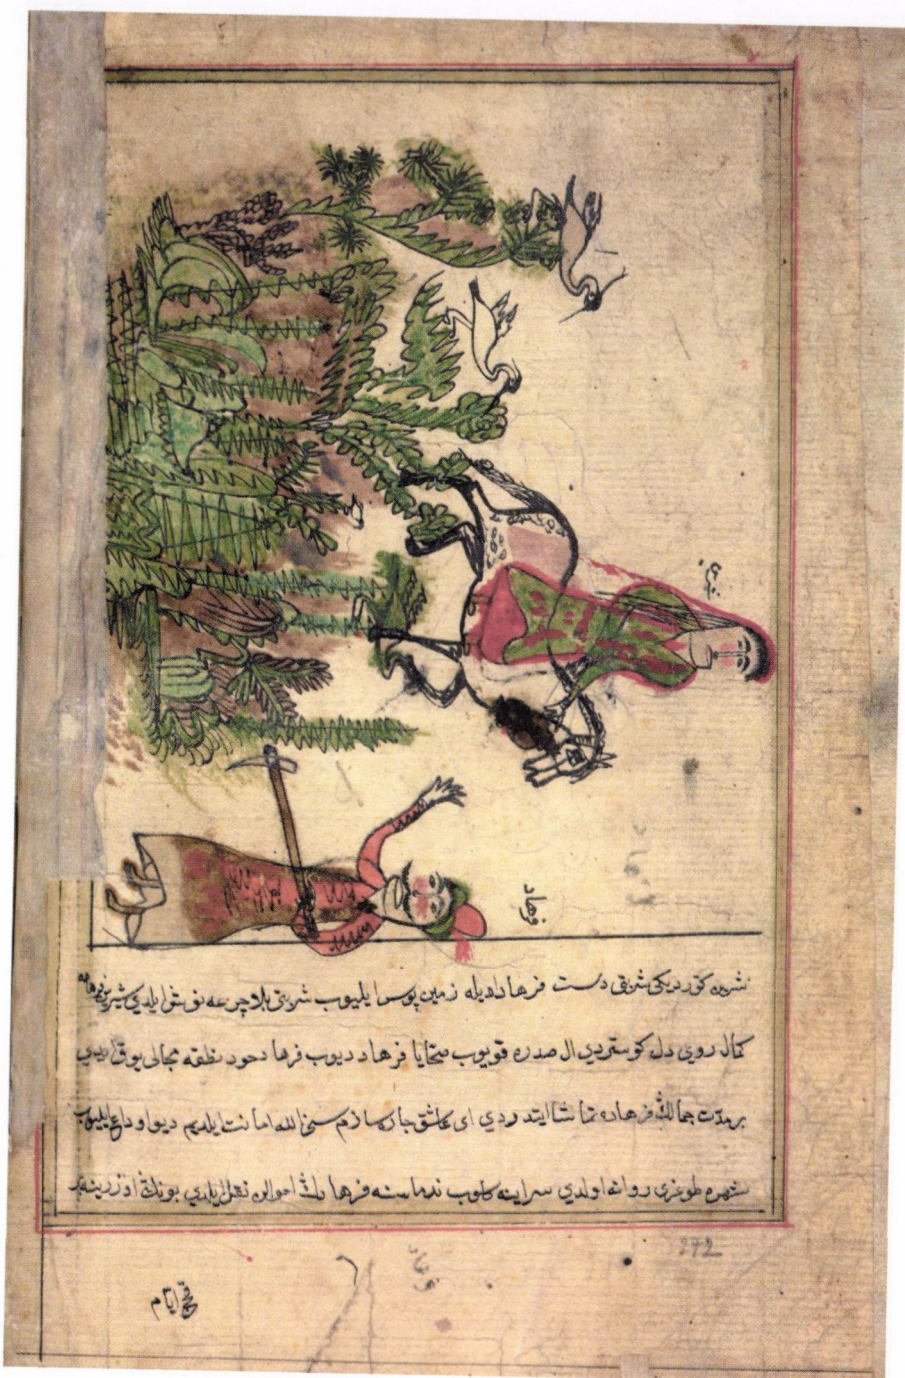 شیرین
فرهاد
شیرین کتوردیکی شربتی دست فرهاده ویله زمین بوس ایلیوب شربتی بلا جرعه نوش ایلدی شیرین فرهاده
کمال روی دل کوستردی ال صدره قویوب صحّا یا فرهاد دیوب فرهادحود نطقه مجالی یوق ایدی
بر مدّت جمالڭ فرهاده تماشا ایتدردی ای عاشق جاره سازم سنی الله امانت ایلدم دیو اوداع ایلیوب
شهره طوغری روانه اولدی سراینه کلوب ندماسنه فرهادڭ احوالن نقل ایلدی بونڭ اوزرینه بر
قچ ایام